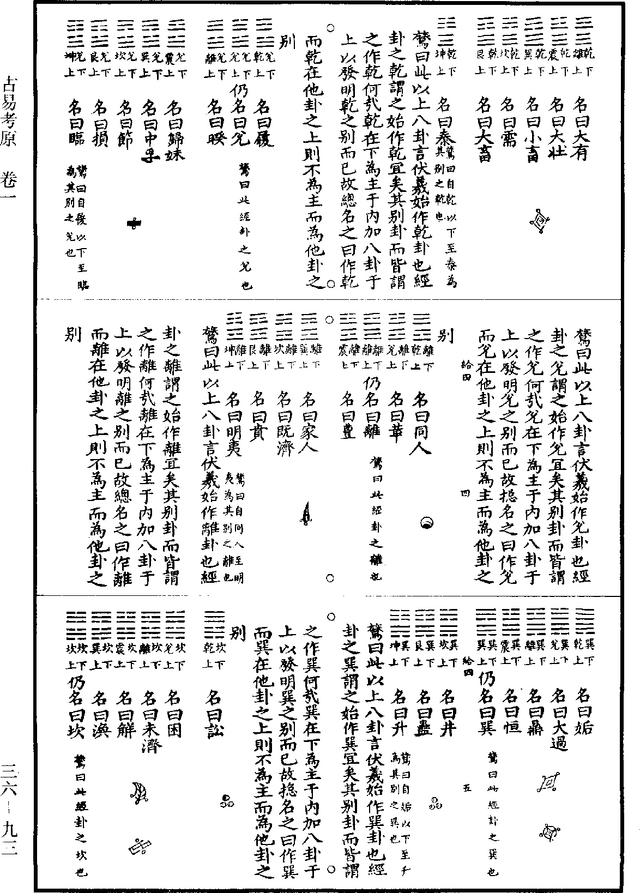 乾下離上 名曰大有
乾下震上 名曰大壯
乾下巽上 名曰小畜
乾下坎上 名曰需
乾下艮上 名曰大畜
乾下坤上 名曰泰 鷟曰自乾以下至泰為其別之乾也
鷟曰此以上八卦言伏羲始作乾卦也經
卦之乾謂之始作乾宜矣其別卦而皆謂
之作乾何哉乾在下為主于內加八卦于
上以發明乾之別而已故總名之曰作乾
而乾在他卦之上則不為主而為他卦之
別
兌下乾上 名曰履
兌下兌上 仍名曰兌 鷟曰此經卦之兌也
兌下離上 名曰睽
兌下震上 名曰歸妹
兌下巽上 名曰中孚
兌下坎上 名曰節
兌下艮上 名曰損
兌下坤上 名曰臨 鷟曰自履以下至臨為其別之兌也
鷟曰此以上八卦言伏羲始作兌卦也經
卦之兌謂之始作兌宜矣其別卦而皆謂
之作兌何哉兌在下為主于內加八卦于
上以發明兌之別而已故揔名之曰作兌
而兌在他卦之上則不為主而為他卦之
給四 四
別
離下乾上 名曰同人
離下兌上 名曰革
離下離上 仍名曰離 鷟曰此經卦之離也
離下震上 名曰豊
離下巽上 名曰家人
離下坎上 名曰既濟
離下艮上 名曰賁
離下坤上 名曰明夷 鷟曰自同人至明夷為其別之離也
鷟曰此以上八卦言伏羲始作離卦也經
卦之離謂之始作離宜矣其別卦而皆謂
之作離何哉離在下為主于內加八卦于
上以發明離之別而已故總名之曰作離
而離在他卦之上則不為主而為他卦之
別
巽下乾上 名曰姤
巽下兌上 名曰大過
巽下離上 名曰鼎
巽下震上 名曰恒
巽下巽上 仍名曰巽 鷟曰此經卦之巽也
給四 五
巽下坎上 名曰井
巽下艮上 名曰蠱
巽下坤上 名曰升 鷟曰自姤以下至升為其別之巽也
鷟曰此以上八卦言伏羲始作巽卦也經
卦之巽謂之始作巽宜矣其別卦而皆謂
之作巽何哉巽在下為主于內加八卦于
上以發明巽之別而已故揔名之曰作巽
而巽在他卦之上則不為主而為他卦之
別
坎下乾上 名曰訟
坎下兌上 名曰困
坎下離上 名曰未濟
坎下震上 名曰解
坎下巽上 名曰渙
坎下坎上 仍名曰坎 鷟曰此經卦之坎也
古易考原 卷一
三六—九三